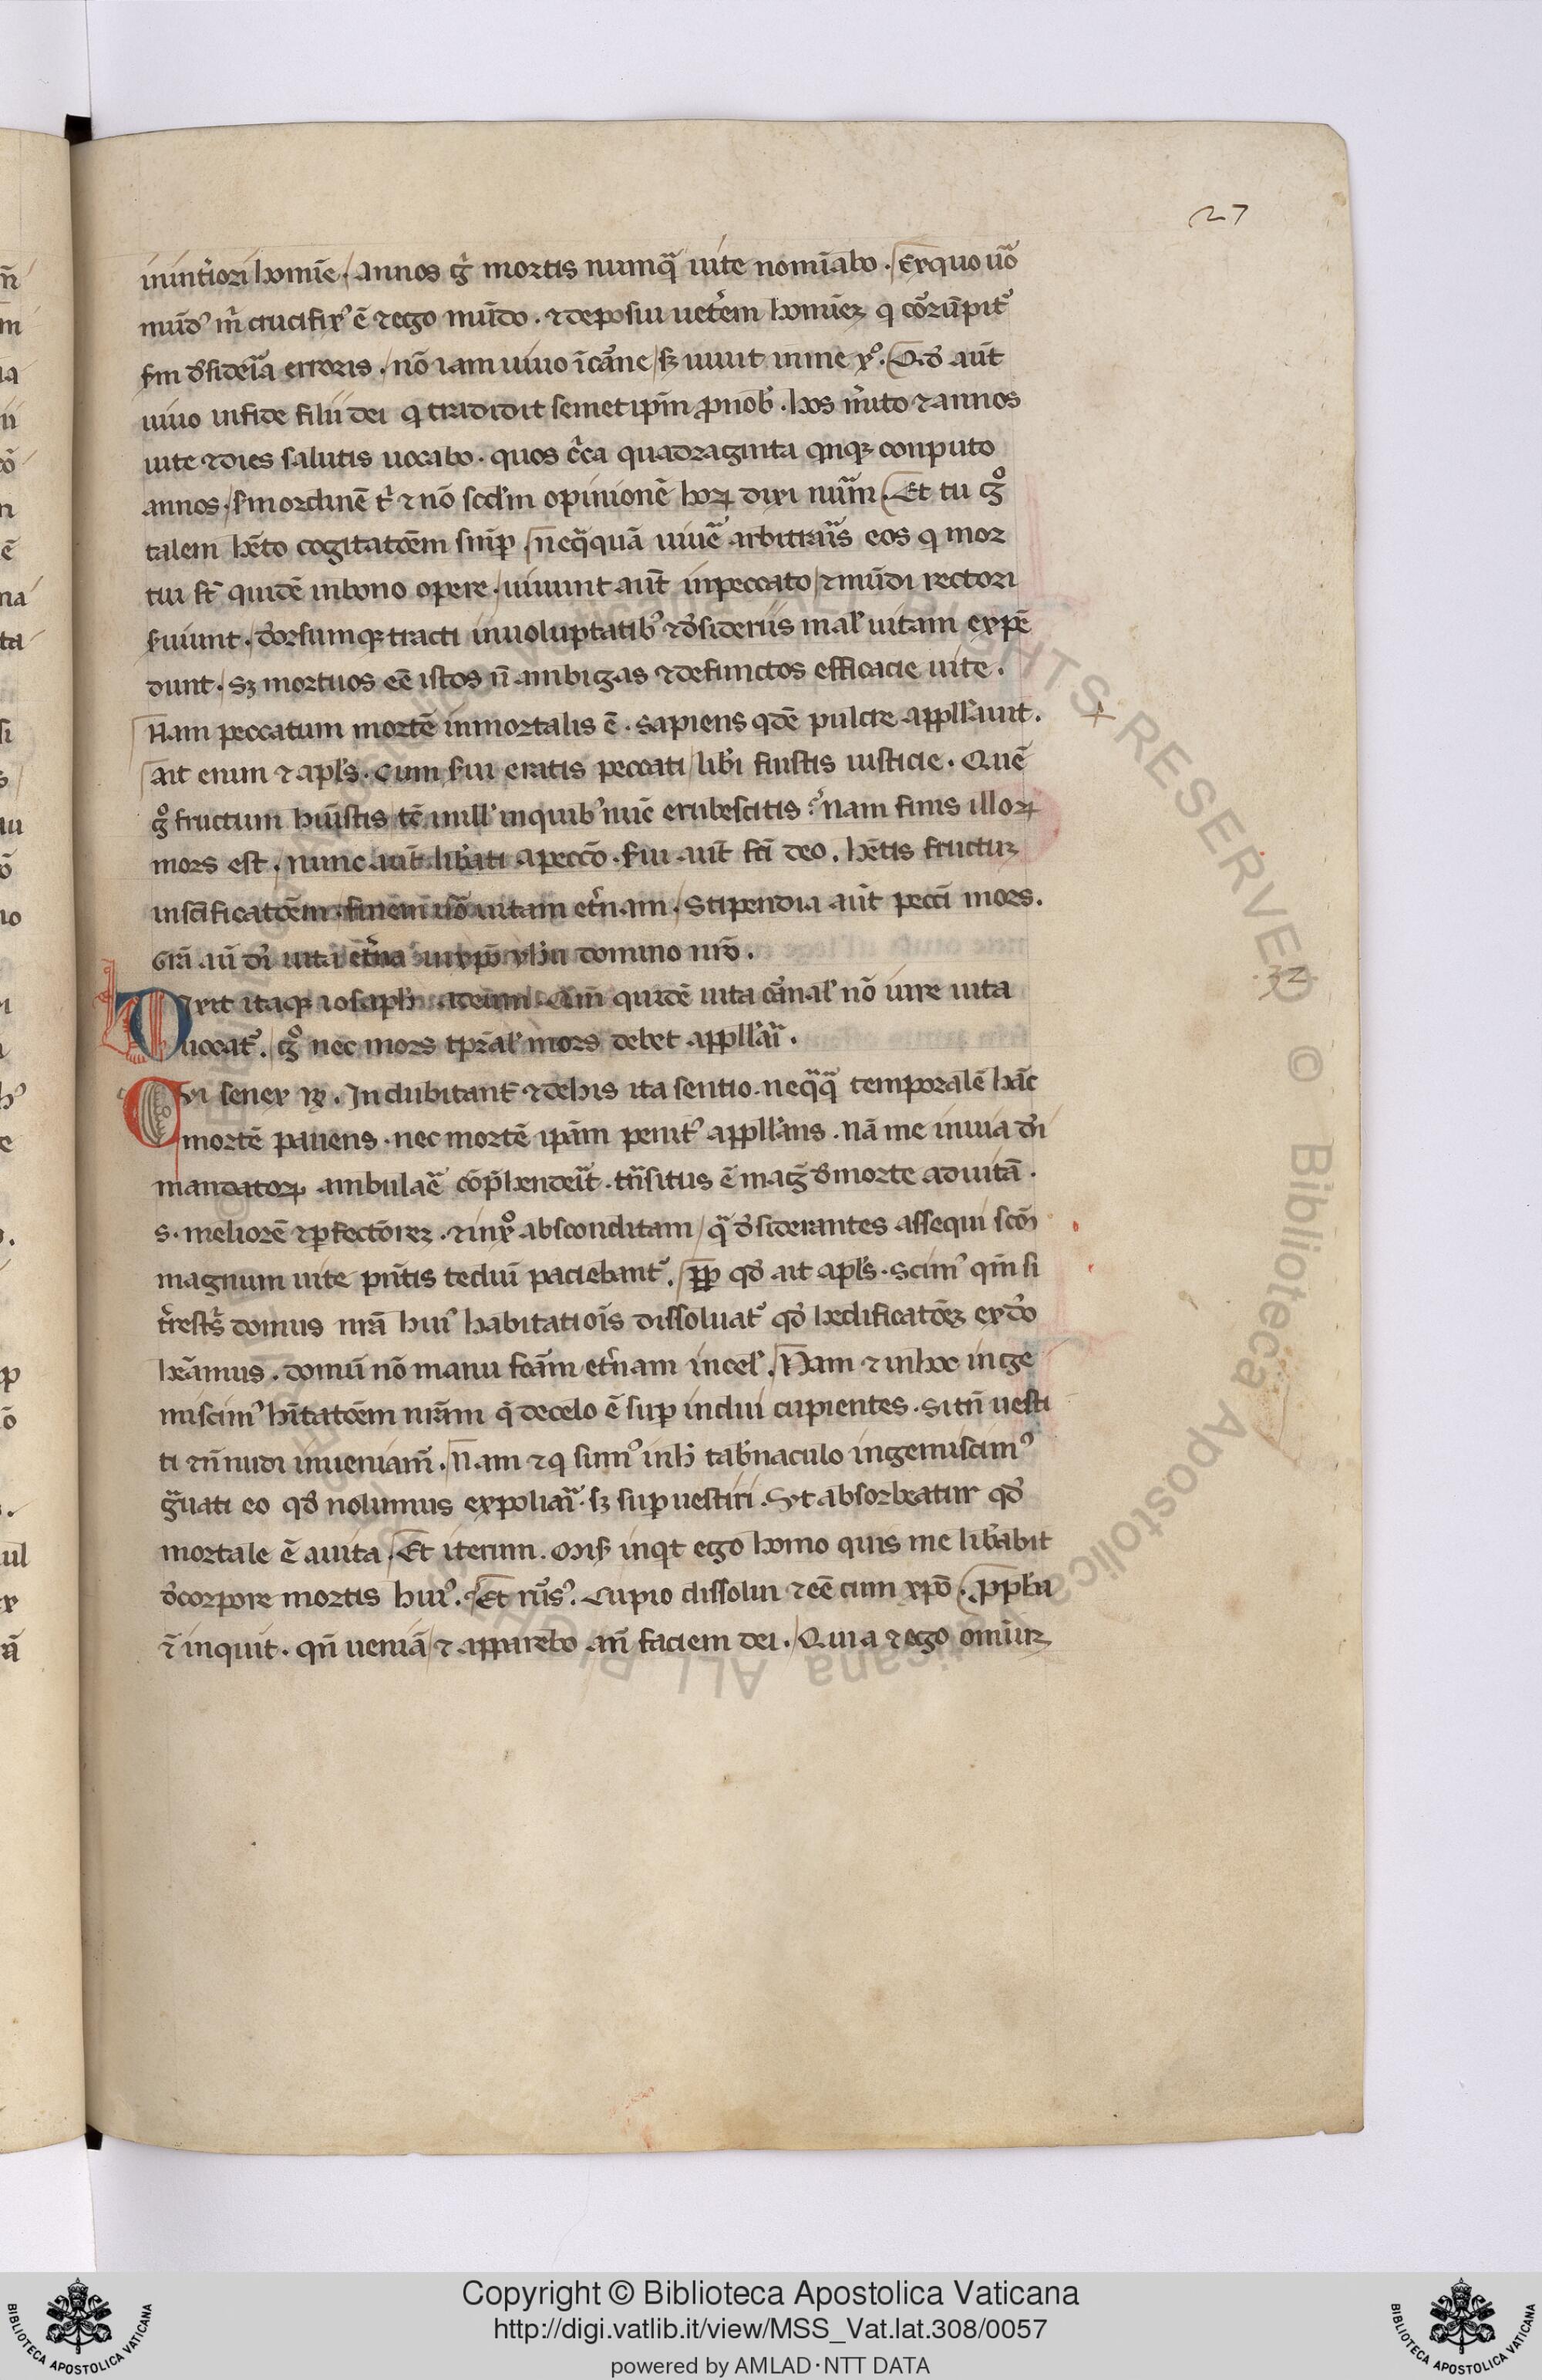 27
inint̾iori homīe. annos g̾ mortis numq̄ uite nomīabo. Exquo ūo
mūdꝰ m̾ crucifixꝰ ē ⁊ ego mūdo. ⁊ deposui uet̾em homiēꝫ q coꝛūpit̾
sm d̾sidēia erroris. nō iam uiuo ī carne sꝫ uiuit in me xꝰ. Qd̾ aūt
uiuo in fide filii dei q tradidit semetip̄m ꝓ nob̾. hos m̾ito ⁊ annos
uite ⁊ dies salutis uocabo. quos c̾ca quadraginta qnqꝫ conputo
annos. sm ordinē t̾ ⁊ nō scd̾m opinionē hoꝝ dixi num̄. Et tu g̊
talem hēto cogitatōem smꝑ neq̄quā uiuē arbitraīs eos q mor
tui st̄ quidē in bono opere. uiuunt aūt in peccato ⁊ mūdi rectori
s̾uiunt. d̾orsumqꝫ tracti in uoluptatibꝰ ⁊ d̾sideriis mal̾ uitam expē
dunt. sꝫ mortuos eē istos n̄ ambigas ⁊ defunctos efficacie uite.
Nam peccatum mortē inmortalis ē. sapiens qdē pulcre appll̾auit.
ait enim ⁊ apl̾s. cum s̾ui eratis peccati lib̾i fuistis iusticie. Quē
g̊ fructum hūistis tē in ill̾ in quibꝰ nūc erubescitis. Nam finis illoꝝ
mors est. nunc aūt lib̾ati a peccō. s̾ui aūt fc̄i deo. hētis fructuꝫ
in sc̄ificatōem. finem ūo uitam et̾nam. Stipendia aūt pecc̄i mors.
Gr̄a aū di̾ uita et̾na in xp̄o yh̄u domino nr̄o.
Dixit itaqꝫ iosaph ad eum. Qm̄ quidē uita carnal̾ nō uire uita
uocat̾. g̊ nec mors tp̄ral̾ mors debet appll̾ari.
Cui senex R. Indubitant̾ ⁊ de his ita sentio. neq̄q̄ temporalē hāc
mortē pauens. nec mortē ipām penitꝰ appll̾ans. Nā me in uia dn̄i
mandatoꝝ ambulaē cōp̄hendeīt. tn̄situs ē mag̾ d̾ morte ad uitā.
s. meliorē ⁊ ꝑfectōreꝫ. ⁊ in xo absconditam q̄ d̾siderantes assequi sc̄oꝝ
magnum uite pn̄tis tediū paciebant̾. ꝓp qd̾ ait apl̾s. Scimꝰ qm̄ si
t̾restr̾ domus nr̄a huiꝰ habitatiōis dissoluat̾ qd̾ hedificatōeꝫ ex dō
hēamus. domū nō manu fc̄am et̾nam in cel̾. Nam ⁊ in hoc inge
miscimꝰ hītatōem nr̄am q̄ de celo ē suꝑ indui cupientes. si tn̄ uesti
ti ⁊ n̄ nudi inueniam̄. Nam ⁊ q sumꝰ in h̾ tab̾naculo ingemiscimꝰ
g̾uati eo qd̾ nolumus expoliari. sꝫ suꝑ uestiri. Ut absorbeatur qd̾
mortale ē a uita. Et iterum. Mis̾ inqt ego homo quis me lib̾abit
d̾ corpore mortis huiꝰ. Et rūsꝰ. Cupio dissolui ⁊ eē cum xp̄o. ꝓph̄a
⁊̄ inquit. qn̄ ueniā ⁊ apparebo an̄ faciem dei. Quia ⁊ ego omīuꝫ
32
Copyright © Biblioteca Apostolica Vaticana
http://digi.vatlib.it/view/MSS_Vat.lat.308/0057
powered by AMLAD·NTT DATA
BIBLIOTECA APOSTOLICA VATICANA
BIBLIOTECA APOSTOLICA VATICANA